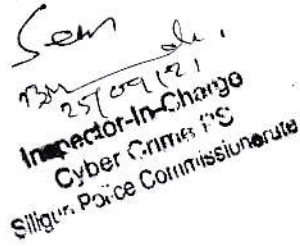 Seen
25/09/21
Inspector-In-Charge
Cyber Crimes PS
Siliguri Police Commissionerate